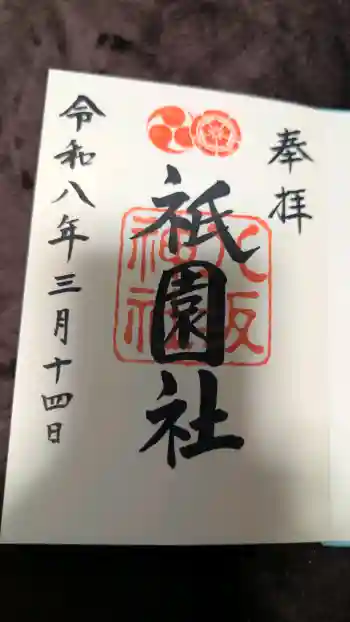 奉拝
祇園社
八坂
神社
令和八年三月十四日